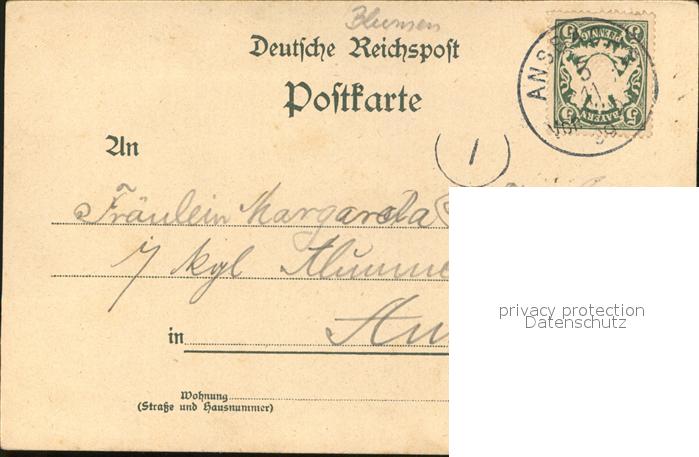 Blumen
Deutsche Reichspost
Postkarte
ANSB
5
11
BAYERN
5
5
An
1
Fräulein Margareta
7 kgl
in
Wohnung
(Straße und Hausnummer)
privacy protection
Datenschutz